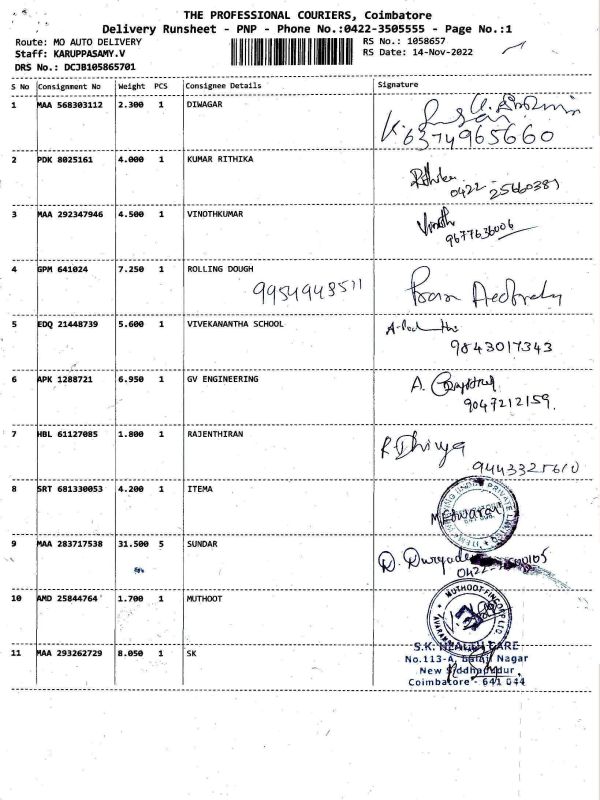 THE PROFESSIONAL COURIERS, Coimbatore
Delivery Runsheet - PNP - Phone No.:0422-3505555 - Page No.:1
Route: MO AUTO DELIVERY
RS No.: 1058657
Staff: KARUPPASAMY.V
RS Date: 14-Nov-2022
DRS No.: DCJB105865701
S No Consignment No Weight PCS Consignee Details Signature
1 MAA 568303112 2.300 1 DIWAGAR
6374965660
2 PDK 8025161 4.000 1 KUMAR RITHIKA
0422-25660389
3 MAA 292347946 4.500 1 VINOTHKUMAR Vinoth
9677636006
4 GPM 641024 7.250 1 ROLLING DOUGH
9954943511
5 EDQ 21448739 5.600 1 VIVEKANANTHA SCHOOL
9843017343
6 APK 1288721 6.950 1 GV ENGINEERING
9047212159
7 HBL 61127085 1.800 1 RAJENTHIRAN R Dhivya
9443325610
8 SRT 681330053 4.200 1 ITEMA
PRIVATE LIMITED
9 MAA 283717538 31.500 5 SUNDAR
0422-
10 AMD 25844764 1.700 1 MUTHOOT
MUTHOOT FINCORP LTD
11 MAA 293262729 8.050 1 SK
S.K. HEALTH CARE
No.113-A, Balaji Nagar
New Siddhapudur
Coimbatore - 641 044